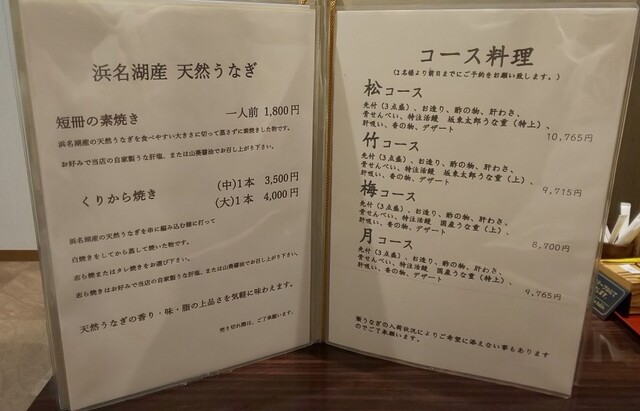 浜名湖産 天然うなぎ
短冊の素焼き 一人前 1,800円
浜名湖産の天然うなぎを食べやすい大きさに切って蒸さずに素焼きした物です。
お好みで当店の自家製肝塩、または山葵醤油でお召し上がり下さい。
くりから焼き (中)1本 3,500円
(大)1本 4,000円
浜名湖産の天然うなぎを串に編み込む様に打って
白焼きをしてから蒸して焼いた物です。
志ら焼またはタレ焼きをお選び下さい。
志ら焼きはお好みで当店の自家製うな肝塩、または山葵醤油でお召し上がり下さい。
天然うなぎの香り・味・脂の上品さを気軽に味わえます。
売り切れ際は、ご了承願います。
コース料理
(2名様より前日までにご予約をお願い致します。)
松コース
先付(3点盛)、お造り、酢の物、肝わさ、
骨せんべい、特注活鰻 坂東太郎うな重(特上)、
肝吸い、香の物、デザート 10,765円
竹コース
先付(3点盛)、お造り、酢の物、肝わさ、
骨せんべい、特注活鰻 坂東太郎うな重(上)、
肝吸い、香の物、デザート 9,715円
梅コース
先付(3点盛)、お造り、酢の物、肝わさ、
骨せんべい、特注活鰻 国産うな重(上)、
肝吸い、香の物、デザート 8,700円
月コース
先付(3点盛)、お造り、酢の物、肝わさ、
骨せんべい、特注活鰻 国産うな重(特上)、
肝吸い、香の物、デザート 9,765円
※うなぎの入荷状況によりご希望に添えない事もあります
のでご了承願います。